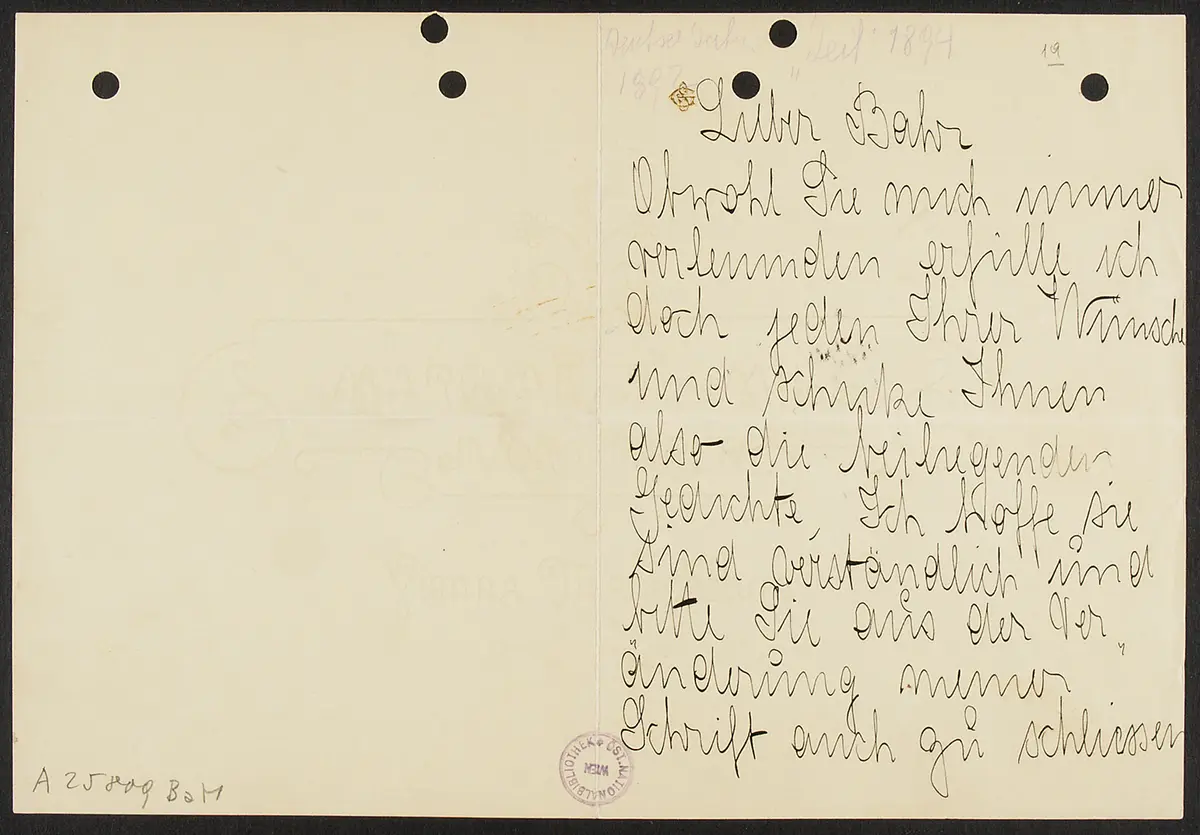 "Zeit" 1894
19
Lieber Bahr
Obwohl Sie mich immer
verleumden erfülle ich
doch jeden Ihrer Wünsche
und schicke Ihnen
also die beiliegenden
Gedichte, Ich hoffe sie
sind verständlich und
bitte Sie aus der Ver„
änderung meiner
Schrift auch zu schliessen
BIBLIOTHEK ÖST. NATIONAL
WIEN
A 25809 BaM